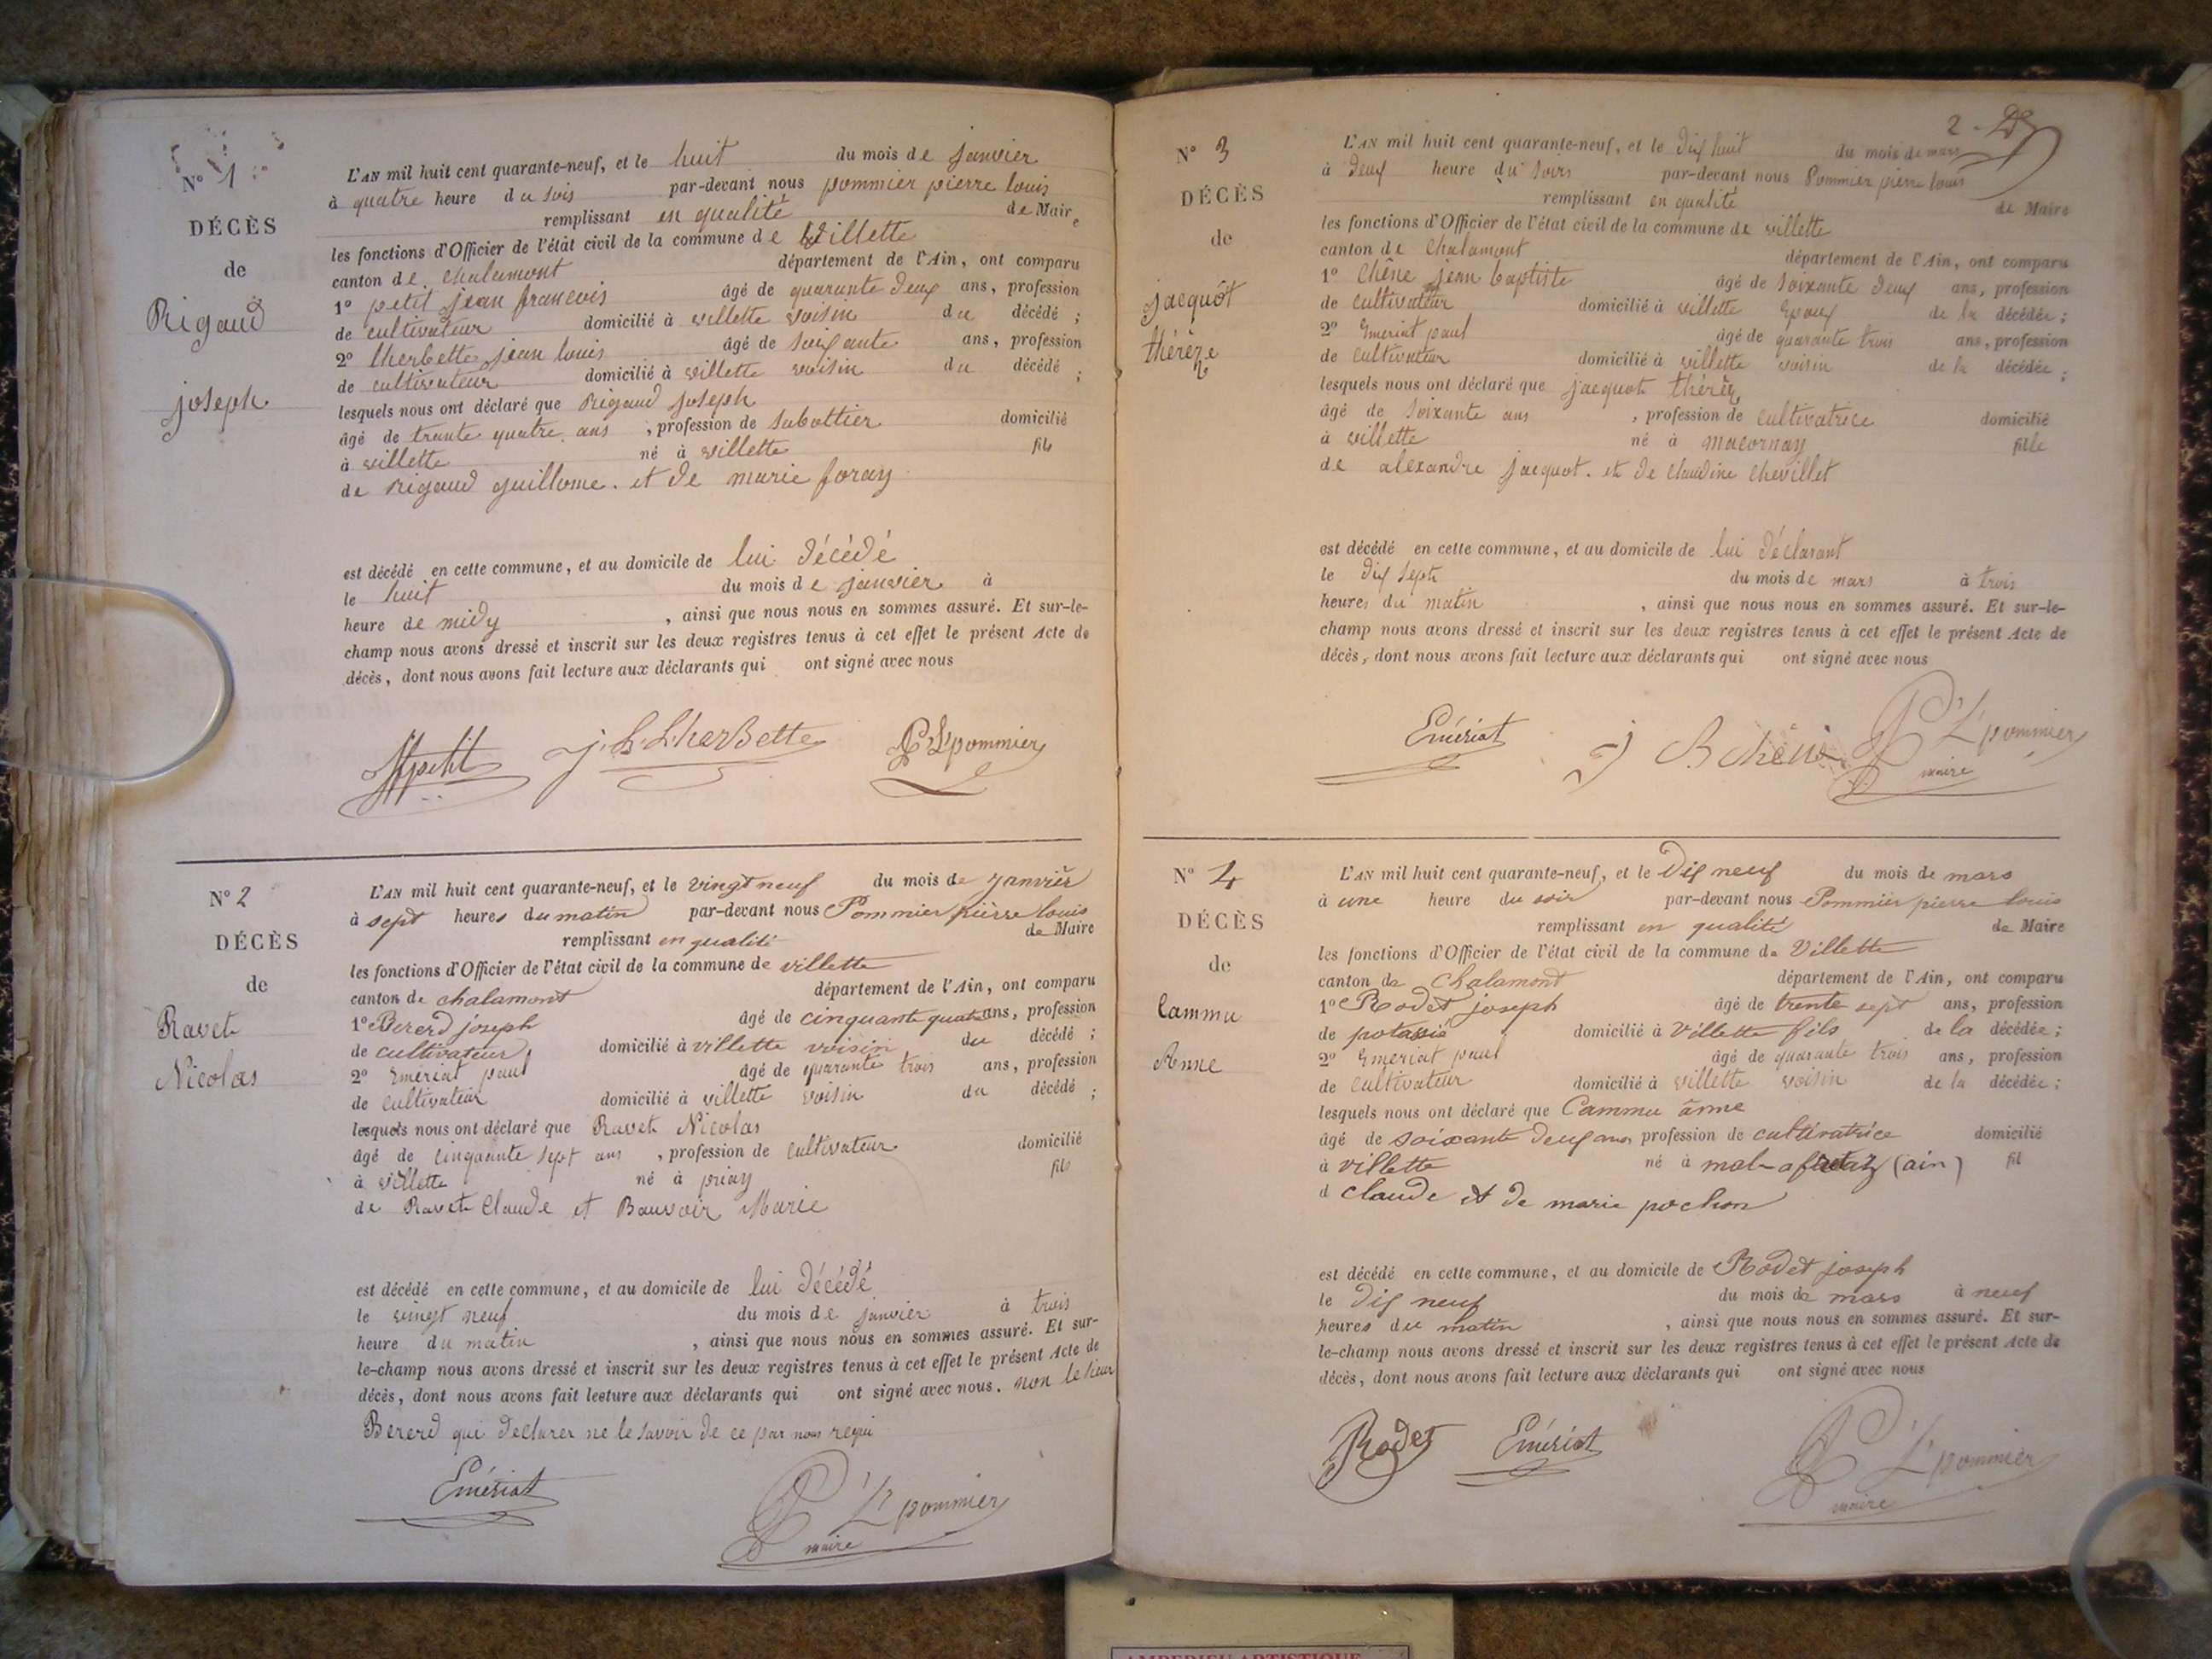 N° 1
DÉCÈS
de
Rigaud
joseph
L'AN mil huit cent quarante-neuf, et le huit du mois de janvier
à quatre heure du sois par-devant nous pommier pierre louis
remplissant en qualité de Maire
les fonctions d'Officier de l'état civil de la commune de Villette
canton de chalamont département de l'Ain, ont comparu
1° petit jean francois âgé de quarante deux ans, profession
de cultivateur domicilié à villette voisin du décédé ;
2° lherbette jean louis âgé de soixante ans, profession
de cultivateur domicilié à villette voisin du décédé ;
lesquels nous ont déclaré que Rigaud joseph
âgé de trente quatre ans , profession de sabottier domicilié
à villette né à villette fils
de Rigaud guillome. et de marie foray
est décédé en cette commune, et au domicile de lui décédé
le huit du mois de janvier à
heure de midy , ainsi que nous nous en sommes assuré. Et sur-le-
champ nous avons dressé et inscrit sur les deux registres tenus à cet effet le présent Acte de
décès, dont nous avons fait lecture aux déclarants qui ont signé avec nous
petit j. L. Lherbette P L pommier
N° 2
DÉCÈS
de
Ravet
Nicolas
L'AN mil huit cent quarante-neuf, et le vingt neuf du mois de janvier
à sept heures du matin par-devant nous Pommier pierre louis
remplissant en qualité de Maire
les fonctions d'Officier de l'état civil de la commune de villette
canton de chalamont département de l'Ain, ont comparu
1° Bererd joseph âgé de cinquante quatre ans, profession
de cultivateur domicilié à villette voisin du décédé ;
2° Emeriat paul âgé de quarante trois ans, profession
de cultivateur domicilié à villette voisin du décédé ;
lesquels nous ont déclaré que Ravet Nicolas
âgé de cinquante sept ans , profession de cultivateur domicilié
à villette né à priay fils
de Ravet Claude et Bauvoir Marie
est décédé en cette commune, et au domicile de lui décédé
le vingt neuf du mois de janvier à trois
heure du matin , ainsi que nous nous en sommes assuré. Et sur-
le-champ nous avons dressé et inscrit sur les deux registres tenus à cet effet le présent Acte de
décès, dont nous avons fait lecture aux déclarants qui ont signé avec nous. non le sieur
Bererd qui declarer ne le savoir de ce par nous requi
Emériat P L pommier
maire
2
N° 3
DÉCÈS
de
jacquôt
thérèze
L'AN mil huit cent quarante-neuf, et le dix huit du mois de mars
à deux heure du soirs par-devant nous Pommier pierre louis
remplissant en qualité de Maire
les fonctions d'Officier de l'état civil de la commune de villette
canton de Chalamont département de l'Ain, ont comparu
1° Chêne jean baptiste âgé de soixante deux ans, profession
de cultivateur domicilié à villette Epoux de la décédée ;
2° Emeriat paul âgé de quarante trois ans, profession
de cultivateur domicilié à villette voisin de la décédée ;
lesquels nous ont déclaré que jacquot thérèz
âgé de soixante ans , profession de cultivatrice domicilié
à villette né à macornay fille
de alexandre jacquot. et de Claudine Chevillet
est décédé en cette commune, et au domicile de lui déclarant
le dix sept du mois de mars à trois
heures du matin , ainsi que nous nous en sommes assuré. Et sur-le-
champ nous avons dressé et inscrit sur les deux registres tenus à cet effet le présent Acte de
décès, dont nous avons fait lecture aux déclarants qui ont signé avec nous
Emériat J B chêne P L pommier
maire
N° 4
DÉCÈS
de
Cammu
Anne
L'AN mil huit cent quarante-neuf, et le Dix neuf du mois de mars
à une heure du soir par-devant nous Pommier pierre louis
remplissant en qualité de Maire
les fonctions d'Officier de l'état civil de la commune de Villette
canton de Chalamont département de l'Ain, ont comparu
1° Rodet joseph âgé de trente sept ans, profession
de potassié domicilié à Villette fils de la décédée ;
2° Emeriat paul âgé de quarante trois ans, profession
de cultivateur domicilié à villette voisin de la décédée ;
lesquels nous ont déclaré que Cammu ânne
âgé de soixante deux ans profession de cultivatrice domicilié
à villette né à mal-afretaz (ain) fil
d claude et de marie pochon
est décédé en cette commune, et au domicile de Rodet joseph
le Dix neuf du mois de mars à neuf
heures du matin , ainsi que nous nous en sommes assuré. Et sur-
le-champ nous avons dressé et inscrit sur les deux registres tenus à cet effet le présent Acte de
décès, dont nous avons fait lecture aux déclarants qui ont signé avec nous
Rodet Emériat P L pommier
maire